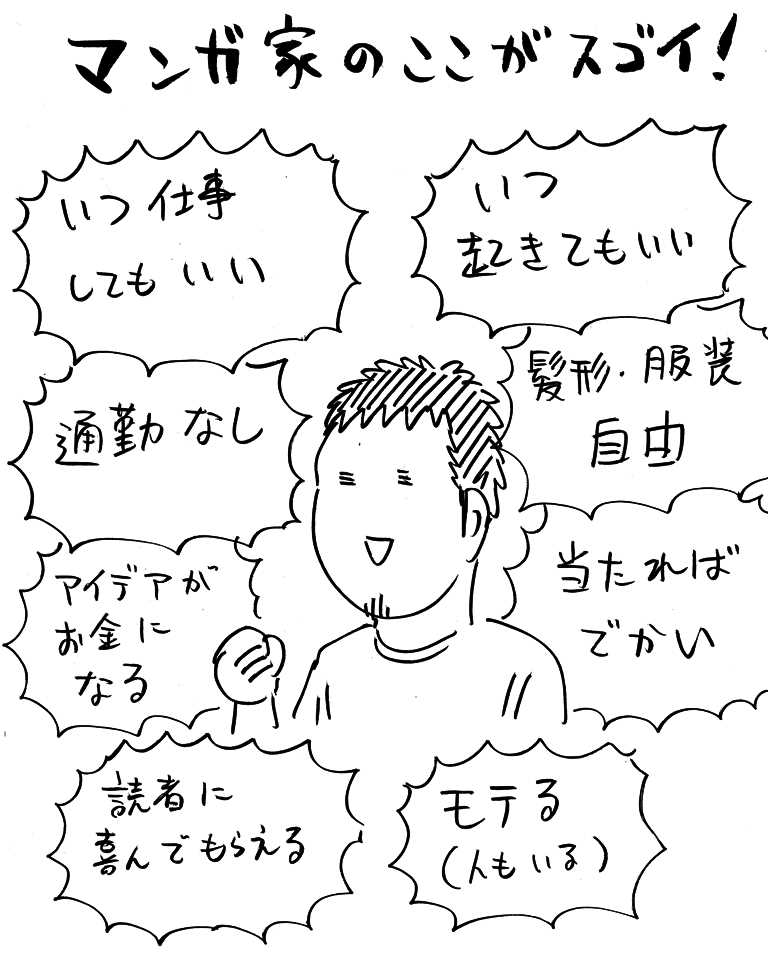 マンガ家のここがスゴイ!
いつ仕事
してもいい
いつ
起きてもいい
通勤なし
髪形・服装
自由
アイデアが
お金に
なる
当たれば
でかい
読者に
喜んでもらえる
モテる
(人もいる)